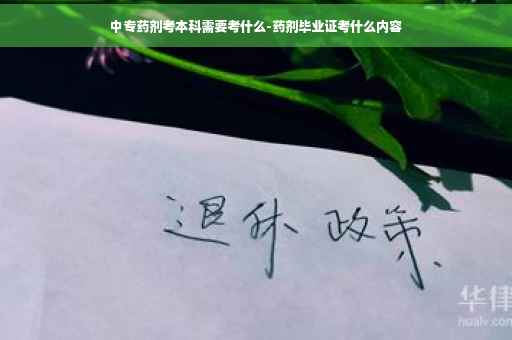 中专药剂考本科需要考什么-药剂毕业证考什么内容
退休 政策
华律
hualv.com